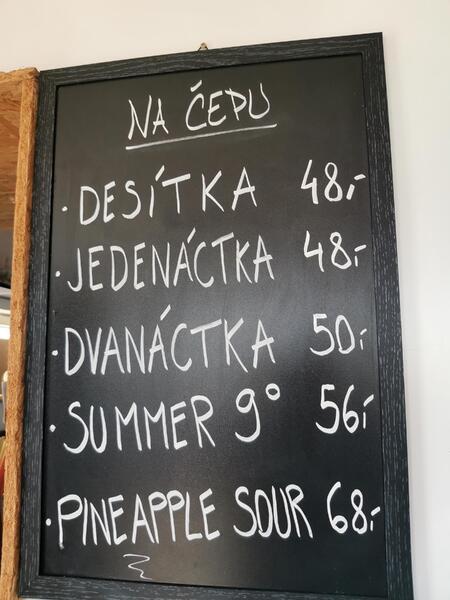 NA ČEPU
· DESÍTKA 48,-
· JEDENÁCTKA 48,-
· DVANÁCTKA 50,-
· SUMMER 9° 56,-
· PINEAPPLE SOUR 68,-